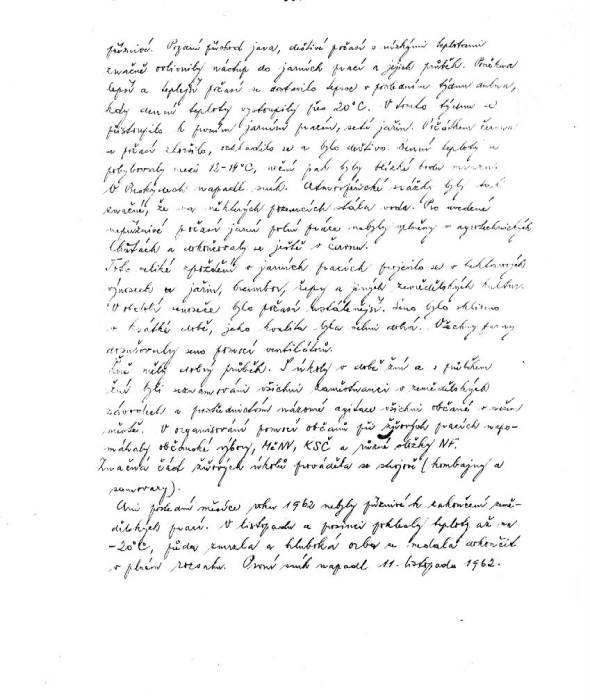 příznivé. Pozdní příchod jara, deštivé počasí s nízkými teplotami
značně ovlivnily nástup do jarních prací a jejich průběh. Poněkud
lepší a teplejší počasí se dostavilo teprve v posledním týdnu dubna,
kdy denní teploty vystoupily přes 20°C. V tomto týdnu se
přistoupilo k prvním jarním pracím, setí jařin. Počátkem června
se počasí zhoršilo, ochladilo se a bylo deštivo. Denní teploty se
pohybovaly mezi 12-14°C, noční pak byly blízké bodu mrazu.
V Beskydech napadl sníh. Atmosférické srážky byly tak
značné, že na některých pozemcích stála voda. Pro uvedené
nepříznivé počasí jarní polní práce nebyly splněny v agrotechnických
lhůtách a dokončovaly se ještě v červnu.
Toto veliké zpoždění v jarních pracích projevilo se v hektarových
výnosech u jařin, brambor, řepy a jiných zemědělských kultur.
V období senoseče bylo počasí ustálenější. Seno bylo sklizeno
v krátké době, jeho kvalita byla velmi dobrá. Všechny farmy
dosušovaly seno pomocí ventilátorů.
Žně měly dobrý průběh. S úkoly v době žní a s průběhem
žní byli seznamováni všichni zaměstnanci v zemědělských
závodech a prostřednictvím názorné agitace všichni občané v našem
městě. V organisování pomoci občanů při žňových pracích napo-
máhaly občanské výbory, MěNV, KSČ a různé složky NF.
Značná část žňových úkolů prováděla se strojně (kombajny a
samovazy).
Ani poslední měsíce roku 1962 nebyly příznivé k zakončení země-
dělských prací. V listopadu a prosinci poklesly teploty až na
-20°C, půda zmrzla a hluboká orba se nedala dokončit
v plném rozsahu. První sníh napadl 11. listopadu 1962.